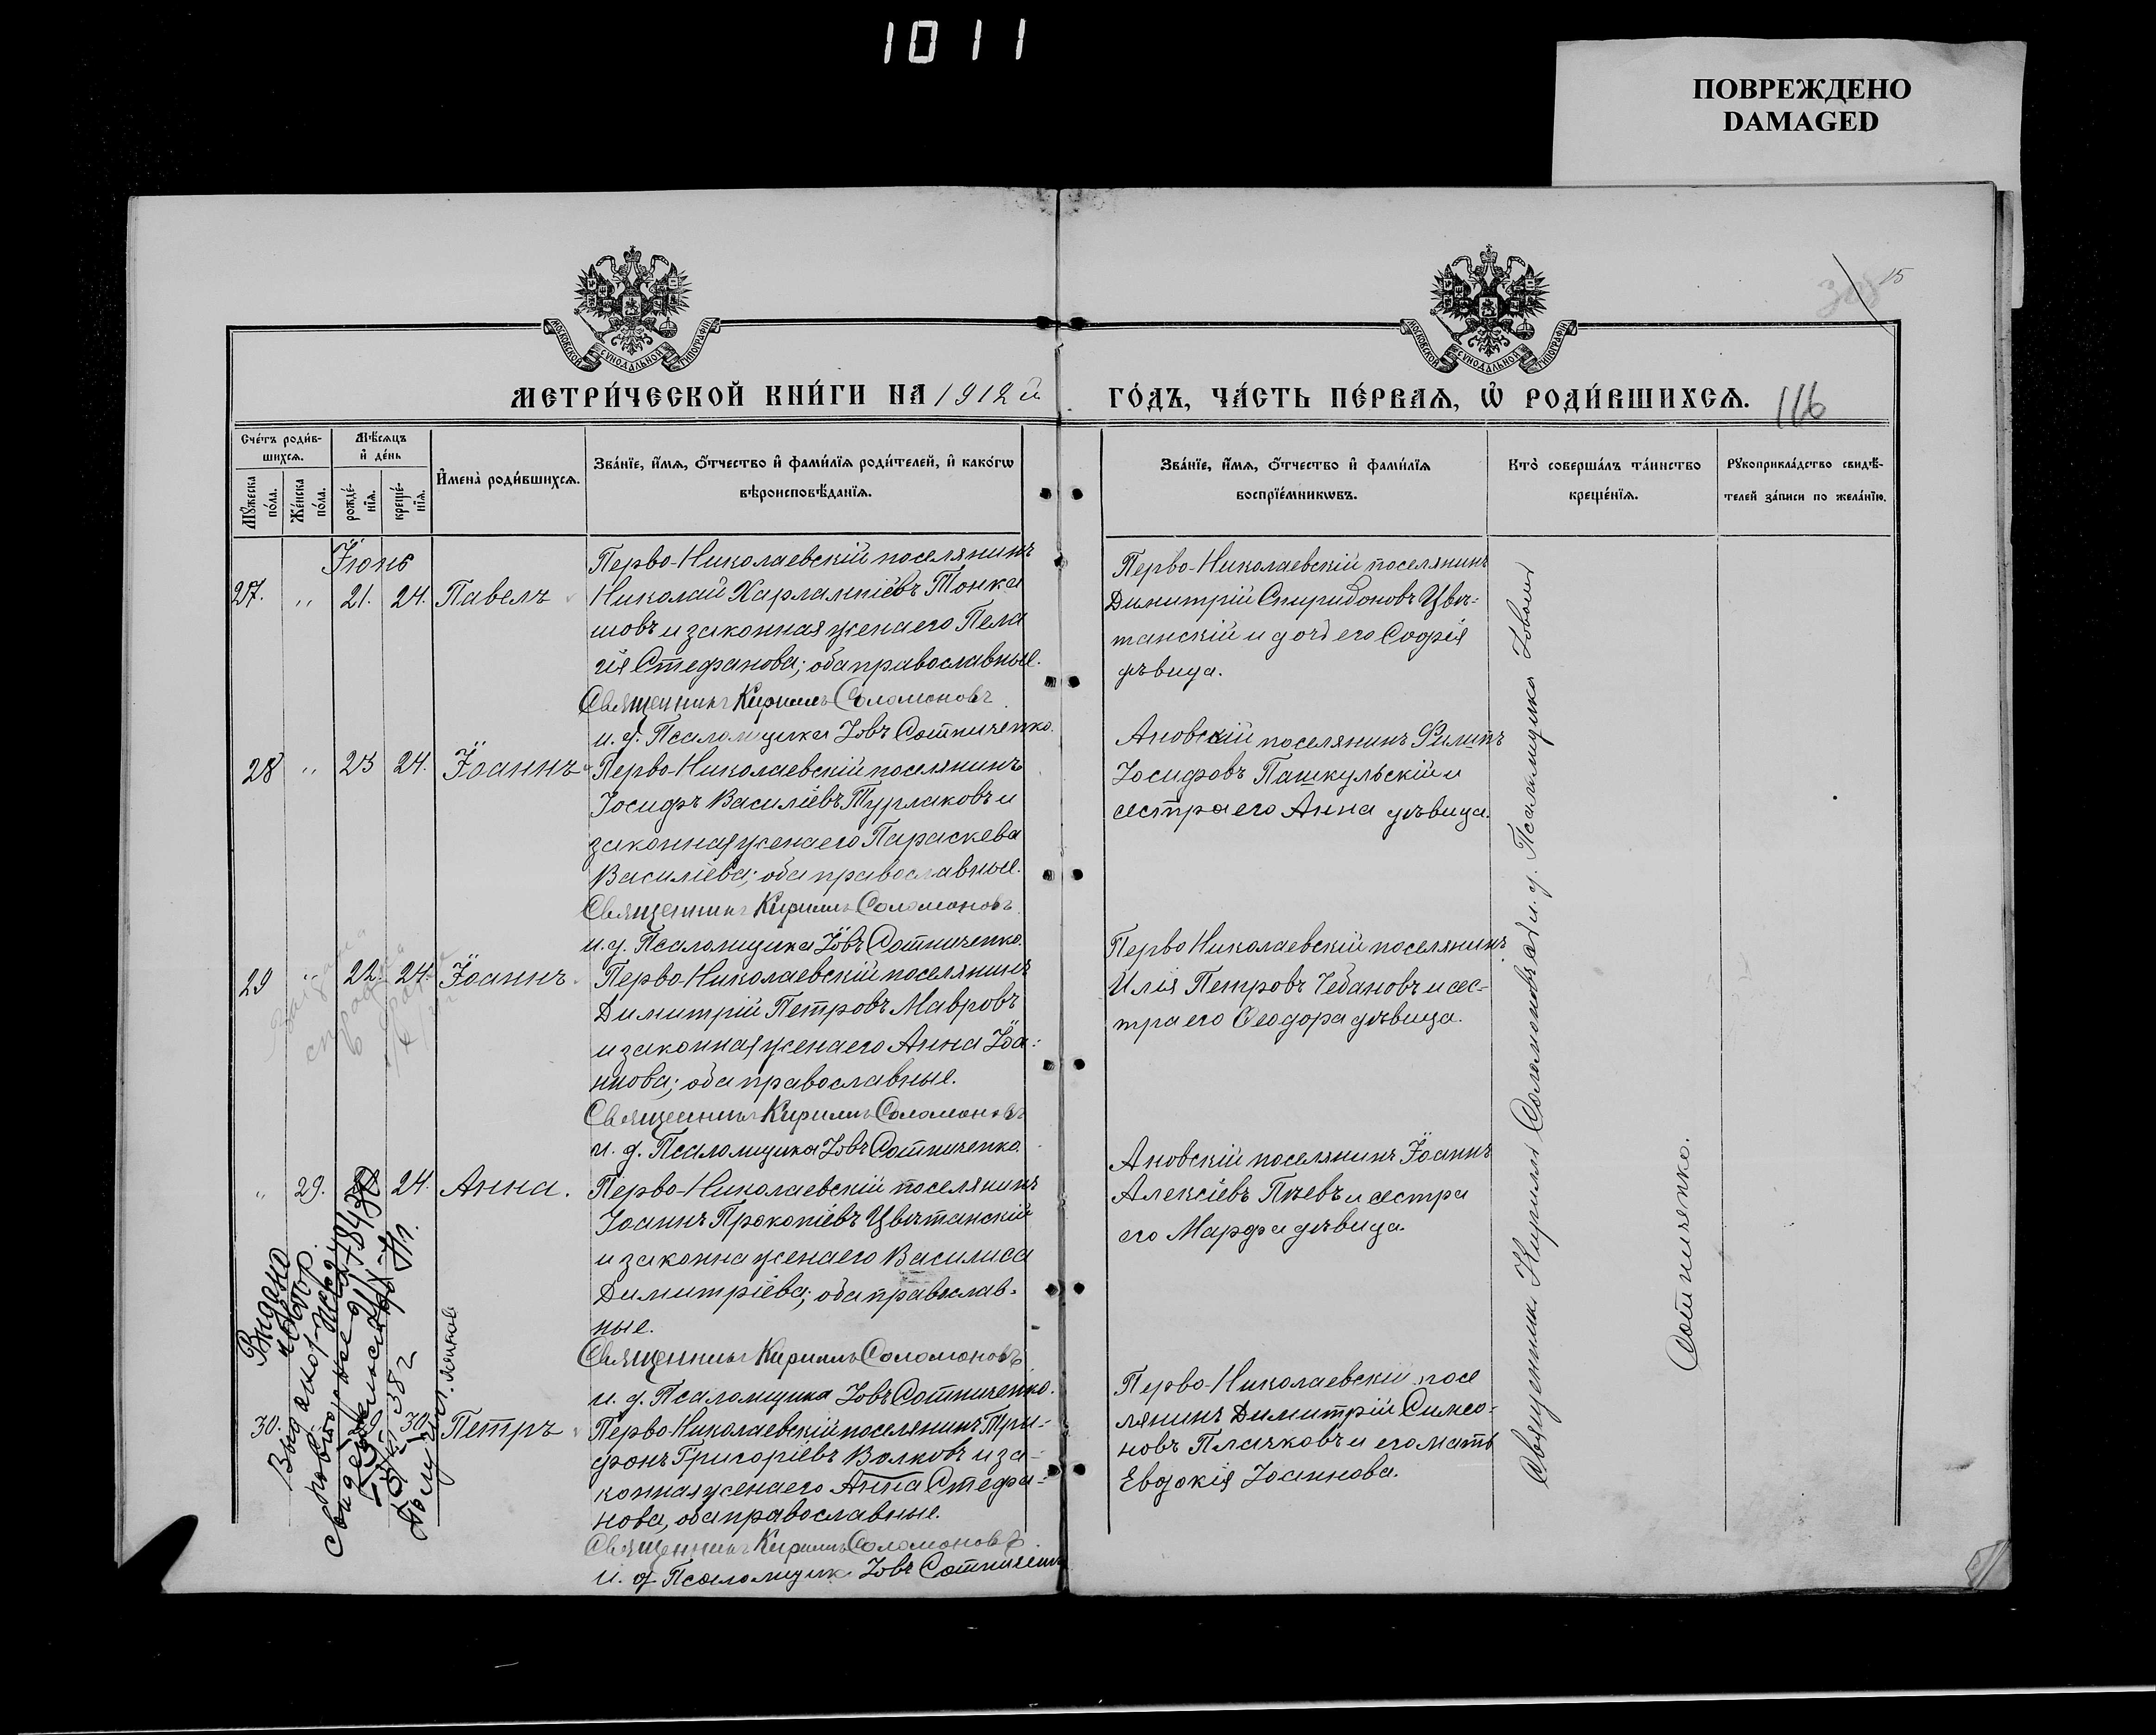 1011
ПОВРЕЖДЕНО
DAMAGED
15
МОСКОВСКОЙ СѴНОДАЛЬНОЙ ТИПОГРАФІИ
МОСКОВСКОЙ СѴНОДАЛЬНОЙ ТИПОГРАФІИ
МЕТРИ́ЧЕСКОЙ КНИ́ГИ НА 1912 й
ГО́ДЪ, ЧА́СТЬ ПЕ́РВАѦ, Ѡ҆ РОДИ́ВШИХСѦ.
116
Сче́тъ роди́в-
шихсѧ.
Мѣ́сѧцъ
и҆ де́нь
Мꙋ́жеска
по́ла.
Же́нска
по́ла.
рожде́-
нїѧ.
креще́-
нїѧ.
И҆мена̀ роди́вшихсѧ.
Зва́нїе, и҆́мѧ, ѻ҆́тчество и҆ фами́лїѧ роди́телей, и҆ како́гѡ
вѣроисповѣ́данїѧ.
Зва́нїе, и҆́мѧ, ѻ҆́тчество и҆ фами́лїѧ
воспрїе́мникѡвъ.
Кто̀ соверша́лъ та́инство
креще́нїѧ.
Рꙋкоприкла́дство свидѣ́-
телей за́писи по жела́нїю.
Іюнь
27. " 21. 24. Павелъ
Перво-Николаевскій поселянинъ
Николай Харлампіевъ Тонка
шовъ и законная жена его Пела
гія Стефанова; оба православные.
Священникъ Кириллъ Соломоновъ
и. д. Псаломщика Іовъ Сотниченко.
Перво-Николаевскій поселянинъ
Димитрій Спиридоновъ Цвѣ-
танскій и дочь его Софія
дѣвица.
28 " 23 24. Іоаннъ
Перво-Николаевскій поселянинъ
Іосифъ Василіевъ Турлаковъ и
законная жена его Параскева
Василіева; оба православные.
Священникъ Кириллъ Соломоновъ
и. д. Псаломщика Іовъ Сотниченко.
Ановскій поселянинъ Филипъ
Іосифовъ Пашкульскій и
сестра его Анна дѣвица.
29 " 22. 24. Іоаннъ
Перво-Николаевскій поселянинъ
Димитрій Петровъ Мавровъ
и законная жена его Анна Іоа-
ннова; оба православные.
Священникъ Кириллъ Соломоновъ
и. д. Псаломщика Іовъ Сотниченко.
Перво Николаевскій поселянинъ
Илія Петровъ Чебановъ и сес-
тра его Ѳеодора дѣвица.
" 29. 24. Анна.
Перво-Николаевскій поселянинъ
Іоаннъ Прокопіевъ Цвѣтанскій
и законна жена его Василиса
Димитріева; оба православ-
ные.
Священникъ Кириллъ Соломоновъ
и. д. Псаломщика Іовъ Сотниченко.
Ановскій поселянинъ Іоаннъ
Алексіевъ Пѣевъ и сестра
его Марфа дѣвица.
30. 30. Петръ
Перво-Николаевскій поселянинъ Три-
фонъ Григоріевъ Волковъ и за-
конная жена его Анна Стефа-
нова, оба православные.
Священникъ Кириллъ Соломоновъ
и. д. Псаломщик Іовъ Сотниченко
Перво-Николаевскій посе
лянинъ Димитрій Симео-
новъ Плачковъ и его мать
Евдокія Іоаннова.
Священникъ Кириллъ Соломоновъ и и. д. Псаломщика Іовъ
Сотниченко.